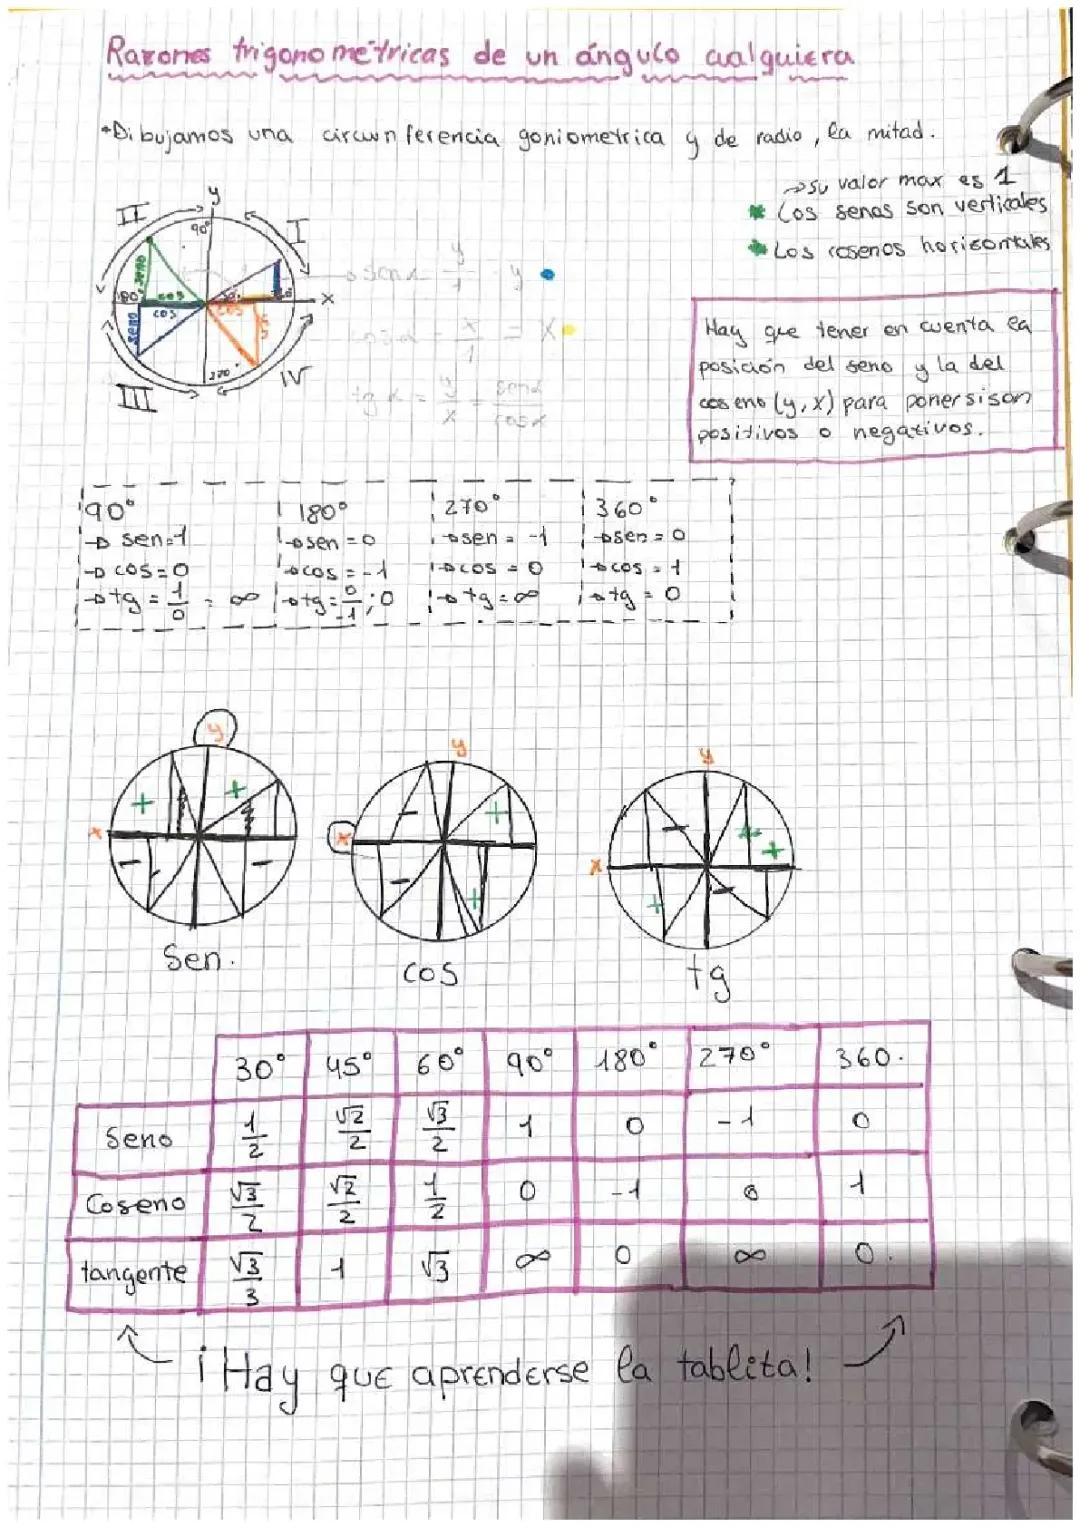 Razones trigonométricas de un ángulo cualquiera
*Dibujamos una circunferencia goniometrica y de radio, la mitad.
→su valor max es 1
* Los senos son verticales
* Los cosenos horizontales
y
II
I
90°
seno
180°
cos
cos
seno
cos
x
270°
III
IV
sen α = y/1 = y
cos α = x/1 = x
tg α = y/x = sen α/cos α
Hay que tener en cuenta la
posición del seno y la del
coseno (y, x) para poner si son
positivos o negativos.
90° 180° 270° 360°
→ sen=1 →sen=0 →sen = -1 →sen = 0
→ cos=0 →cos=-1 →cos = 0 →cos = 1
→tg = 1/0 = ∞ →tg = 0/-1; 0 →tg=∞ →tg = 0
y y y
+ + - + - +
x x x
- - - + + -
Sen. cos tg
30° 45° 60° 90° 180° 270° 360.
Seno 1/2 √2/2 √3/2 1 0 -1 0
Coseno √3/2 √2/2 1/2 0 -1 0 1
tangente √3/3 1 √3 ∞ 0 ∞ 0.
¡Hay que aprenderse la tablita!